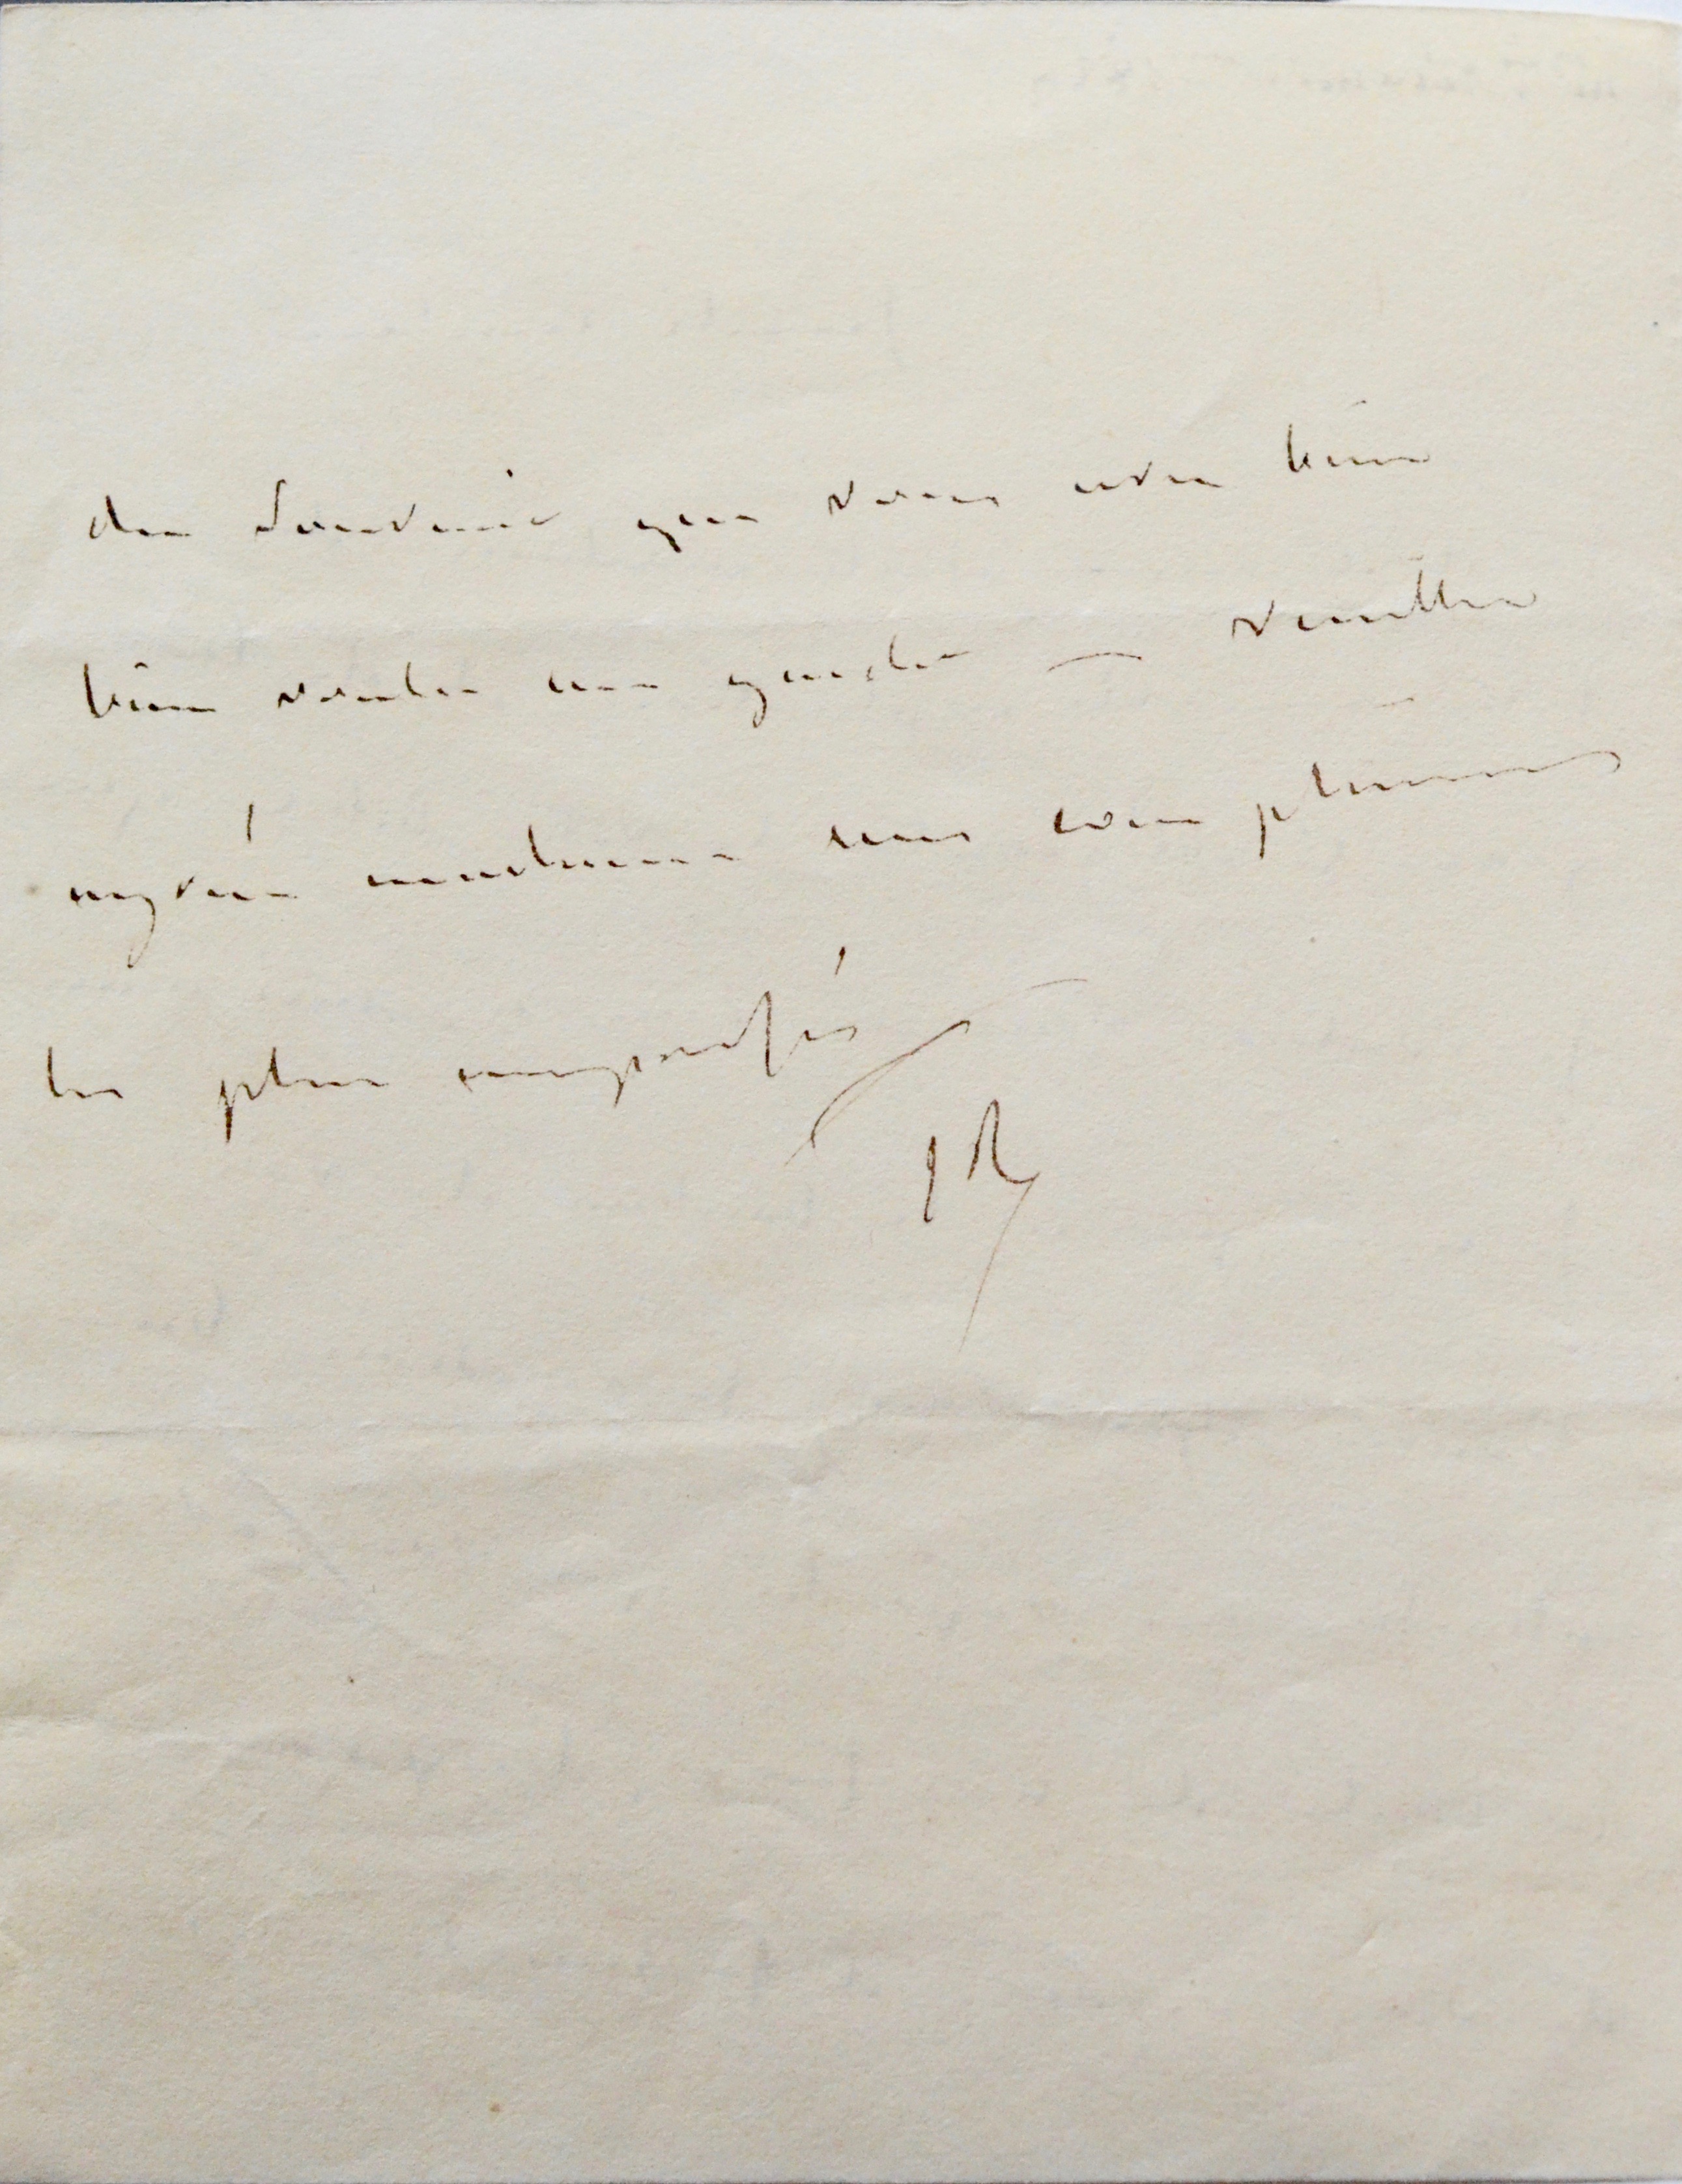 du Souvenir que vous avez bien
bien voulu me garder — veuillez
agréer madame mes compliments
les plus empressés
JR